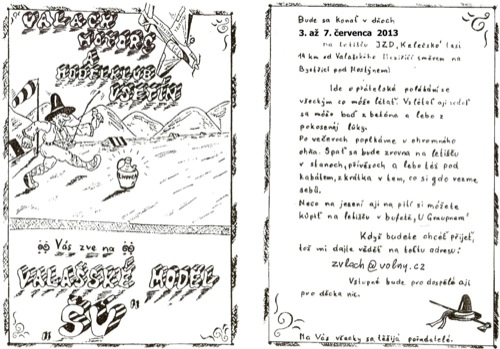 VALACH
MOTORS
A
MODELKLUB
VSETÍN
Vás zve na
VALAŠSKÉ MODEL
Bude sa konať v dňoch
3. až 7. července 2013
na letišťu JZD „Kelečsko" (asi
14 km od Valašského Meziříčí směrem na
Bystřici pod Hostýnem)
Ide o přátelské polétání ze
všeckým co móže létať. Vzlétať aji sedať
sa móže buď z betóna a lebo z
pokosenéj lúky.
Po večeroch popíkáme v ohromného
ohňa. Spať sa bude zrovna na letišťu
v stanoch, přívěsoch a lebo též pod
kabátem, zkrátka v tem, co si gdo vezme
sebú.
Neco na jezení aji na pití si móžete
kópiť na letišťu v bufetě „U Graupnera"
Když budete chcéť přijeť,
tož mi dajte věděť na totťu adresu:
zvlach@volny.cz
Vstupné bude pro dospělé aji
pro děcka nic.
Na Vás všecky sa těšijá pořadatelé.